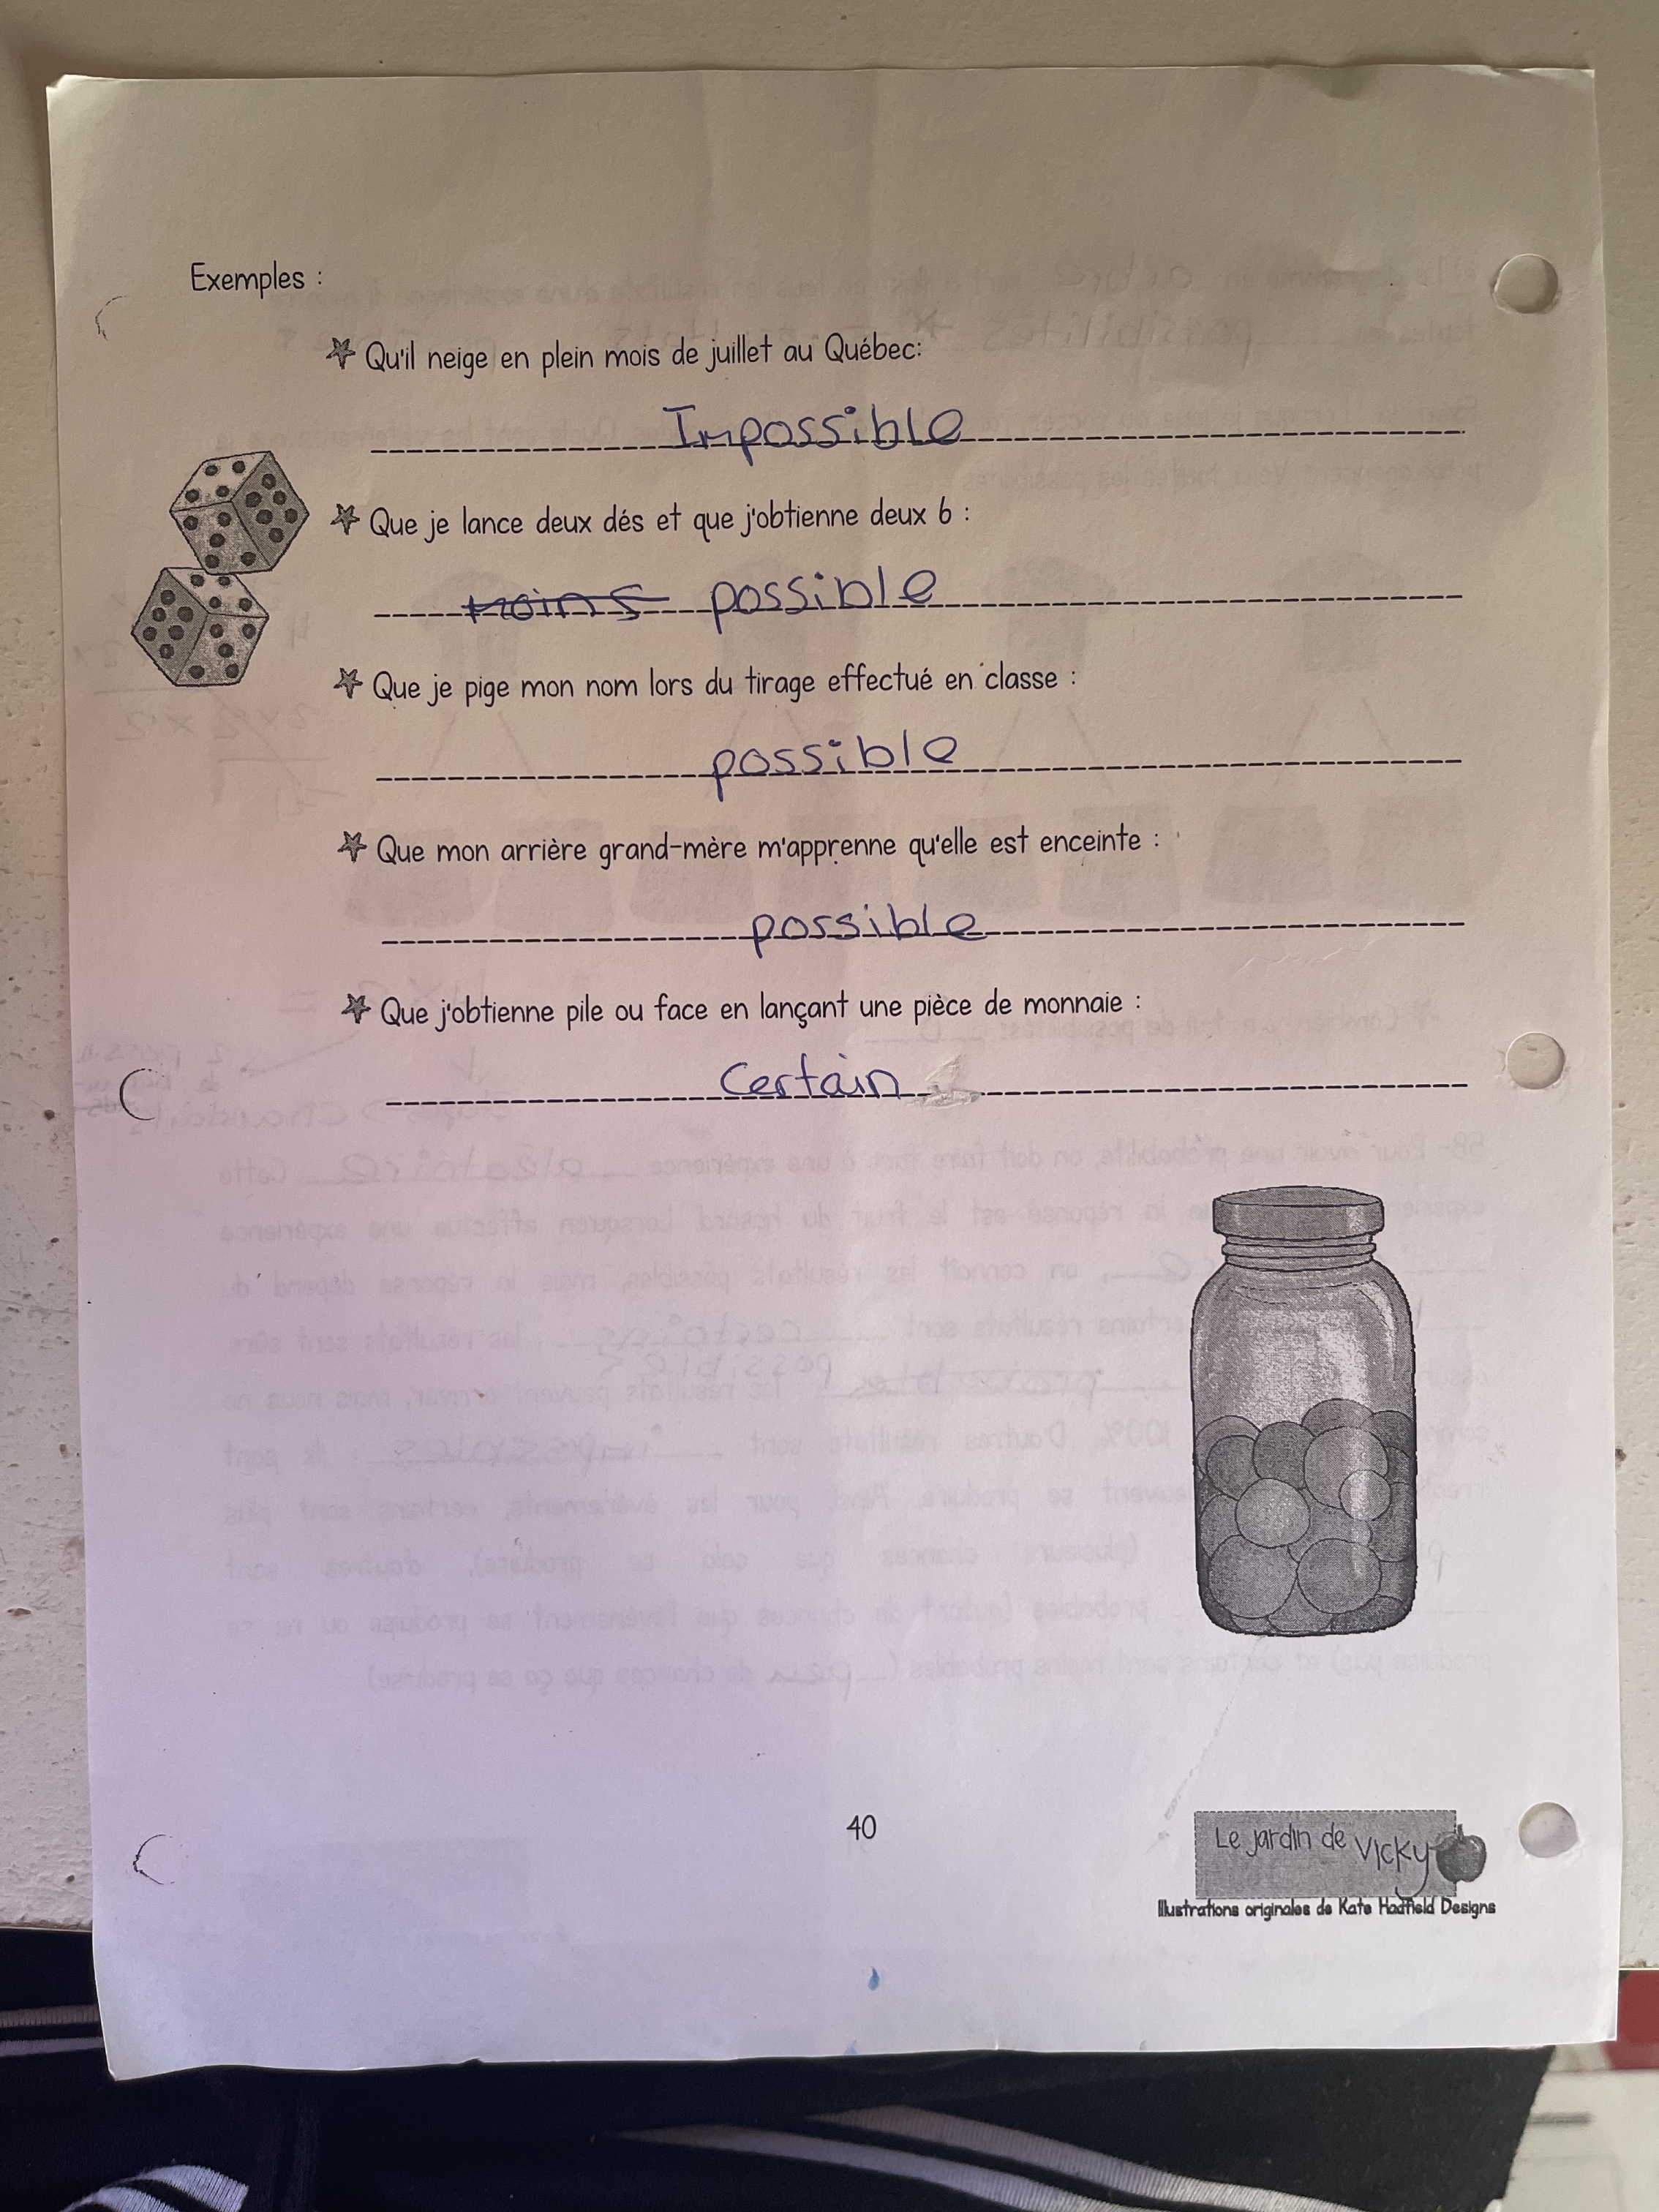 Exemples :
Qu'il neige en plein mois de juillet au Québec:
Impossible
Que je lance deux dés et que j'obtienne deux 6 :
moins possible
Que je pige mon nom lors du tirage effectué en classe :
possible
Que mon arrière grand-mère m'apprenne qu'elle est enceinte :
possible
Que j'obtienne pile ou face en lançant une pièce de monnaie :
Certain
40
Le jardin de Vicky
Illustrations originales de Kate Hadfield Designs